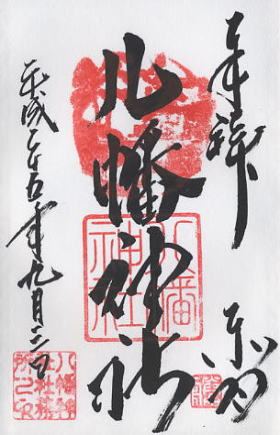 奉拝
八幡神社
平成二十五年九月二日
八幡神社
八幡神
社社務
所之印